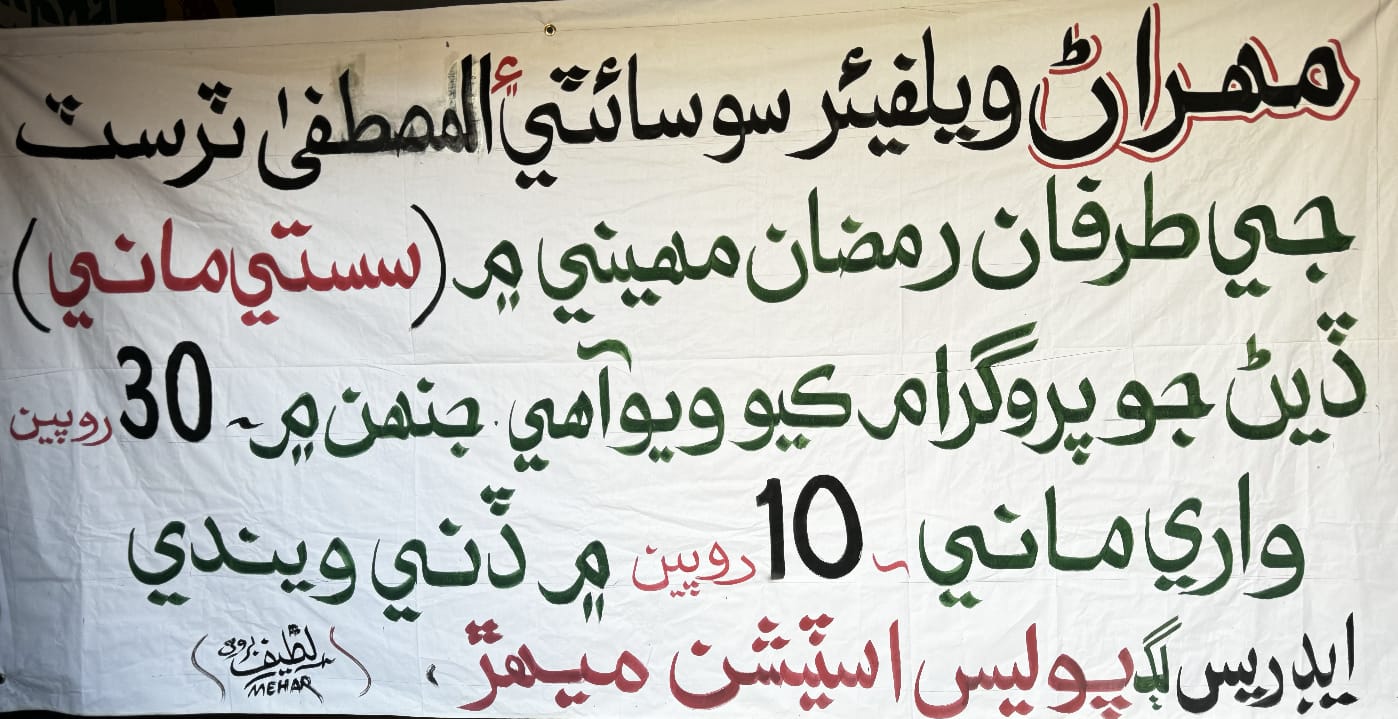 مهراڻ ويلفيئر سوسائٽي ۽ المصطفیٰ ٽرسٽ
جي طرفان رمضان مهيني ۾ (سستي ماني)
ڏيڻ جو پروگرام ڪيو ويو آهي. جنهن ۾ ~ 30 روپين
واري ماني ~ 10 روپين ۾ ڏني ويندي
ايڊريس لڳ پوليس اسٽيشن ميهڙ،
(لطيف بروهي MEHAR)